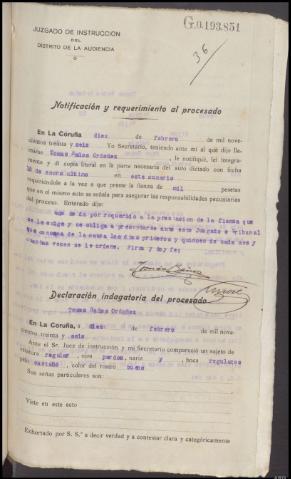 G.0.193.851
JUZGADO DE INSTRUCCIÓN
DEL
DISTRITO DE LA AUDIENCIA
36
Notificación y requerimiento al procesado
En La Coruña diez de febrero de mil nove-
cientos treinta y seis Yo Secretario, teniendo ante mí al que dijo lla-
marse Tomas Ordoñez, le notifiqué, leí íntegra-
mente y dí copia literal en la parte necesaria del auto dictado con fecha
de enero último en este sumario
requiriéndole a la vez a que preste la fianza de mil pesetas
que en el mismo auto se señala para asegurar las responsabilidades pecuniarias
del proceso. Enterado dijo:
que se da por requerido a la prestacion de la fianza que
se le exige y se obliga a presentarse ante este Juzgado o Tribunal
que conozca de la causa los dias primeros y quince de cada mes y
cuantas veces se le ordene. Firma y doy fe;
Declaración indagatoria del procesado
Tomas Ordoñez
En La Coruña, a diez de febrero de mil nove-
cientos treinta y seis
Ante el Sr. Juez de instrucción y mi Secretario compareció un sujeto de
estatura regular, ojos pardos, nariz y boca regulares
pelo castaño, color del rostro bueno
Son señas particulares son:
Viste en este acto
Exhortado por S. S.ª a decir verdad y a contestar clara y categóricamente